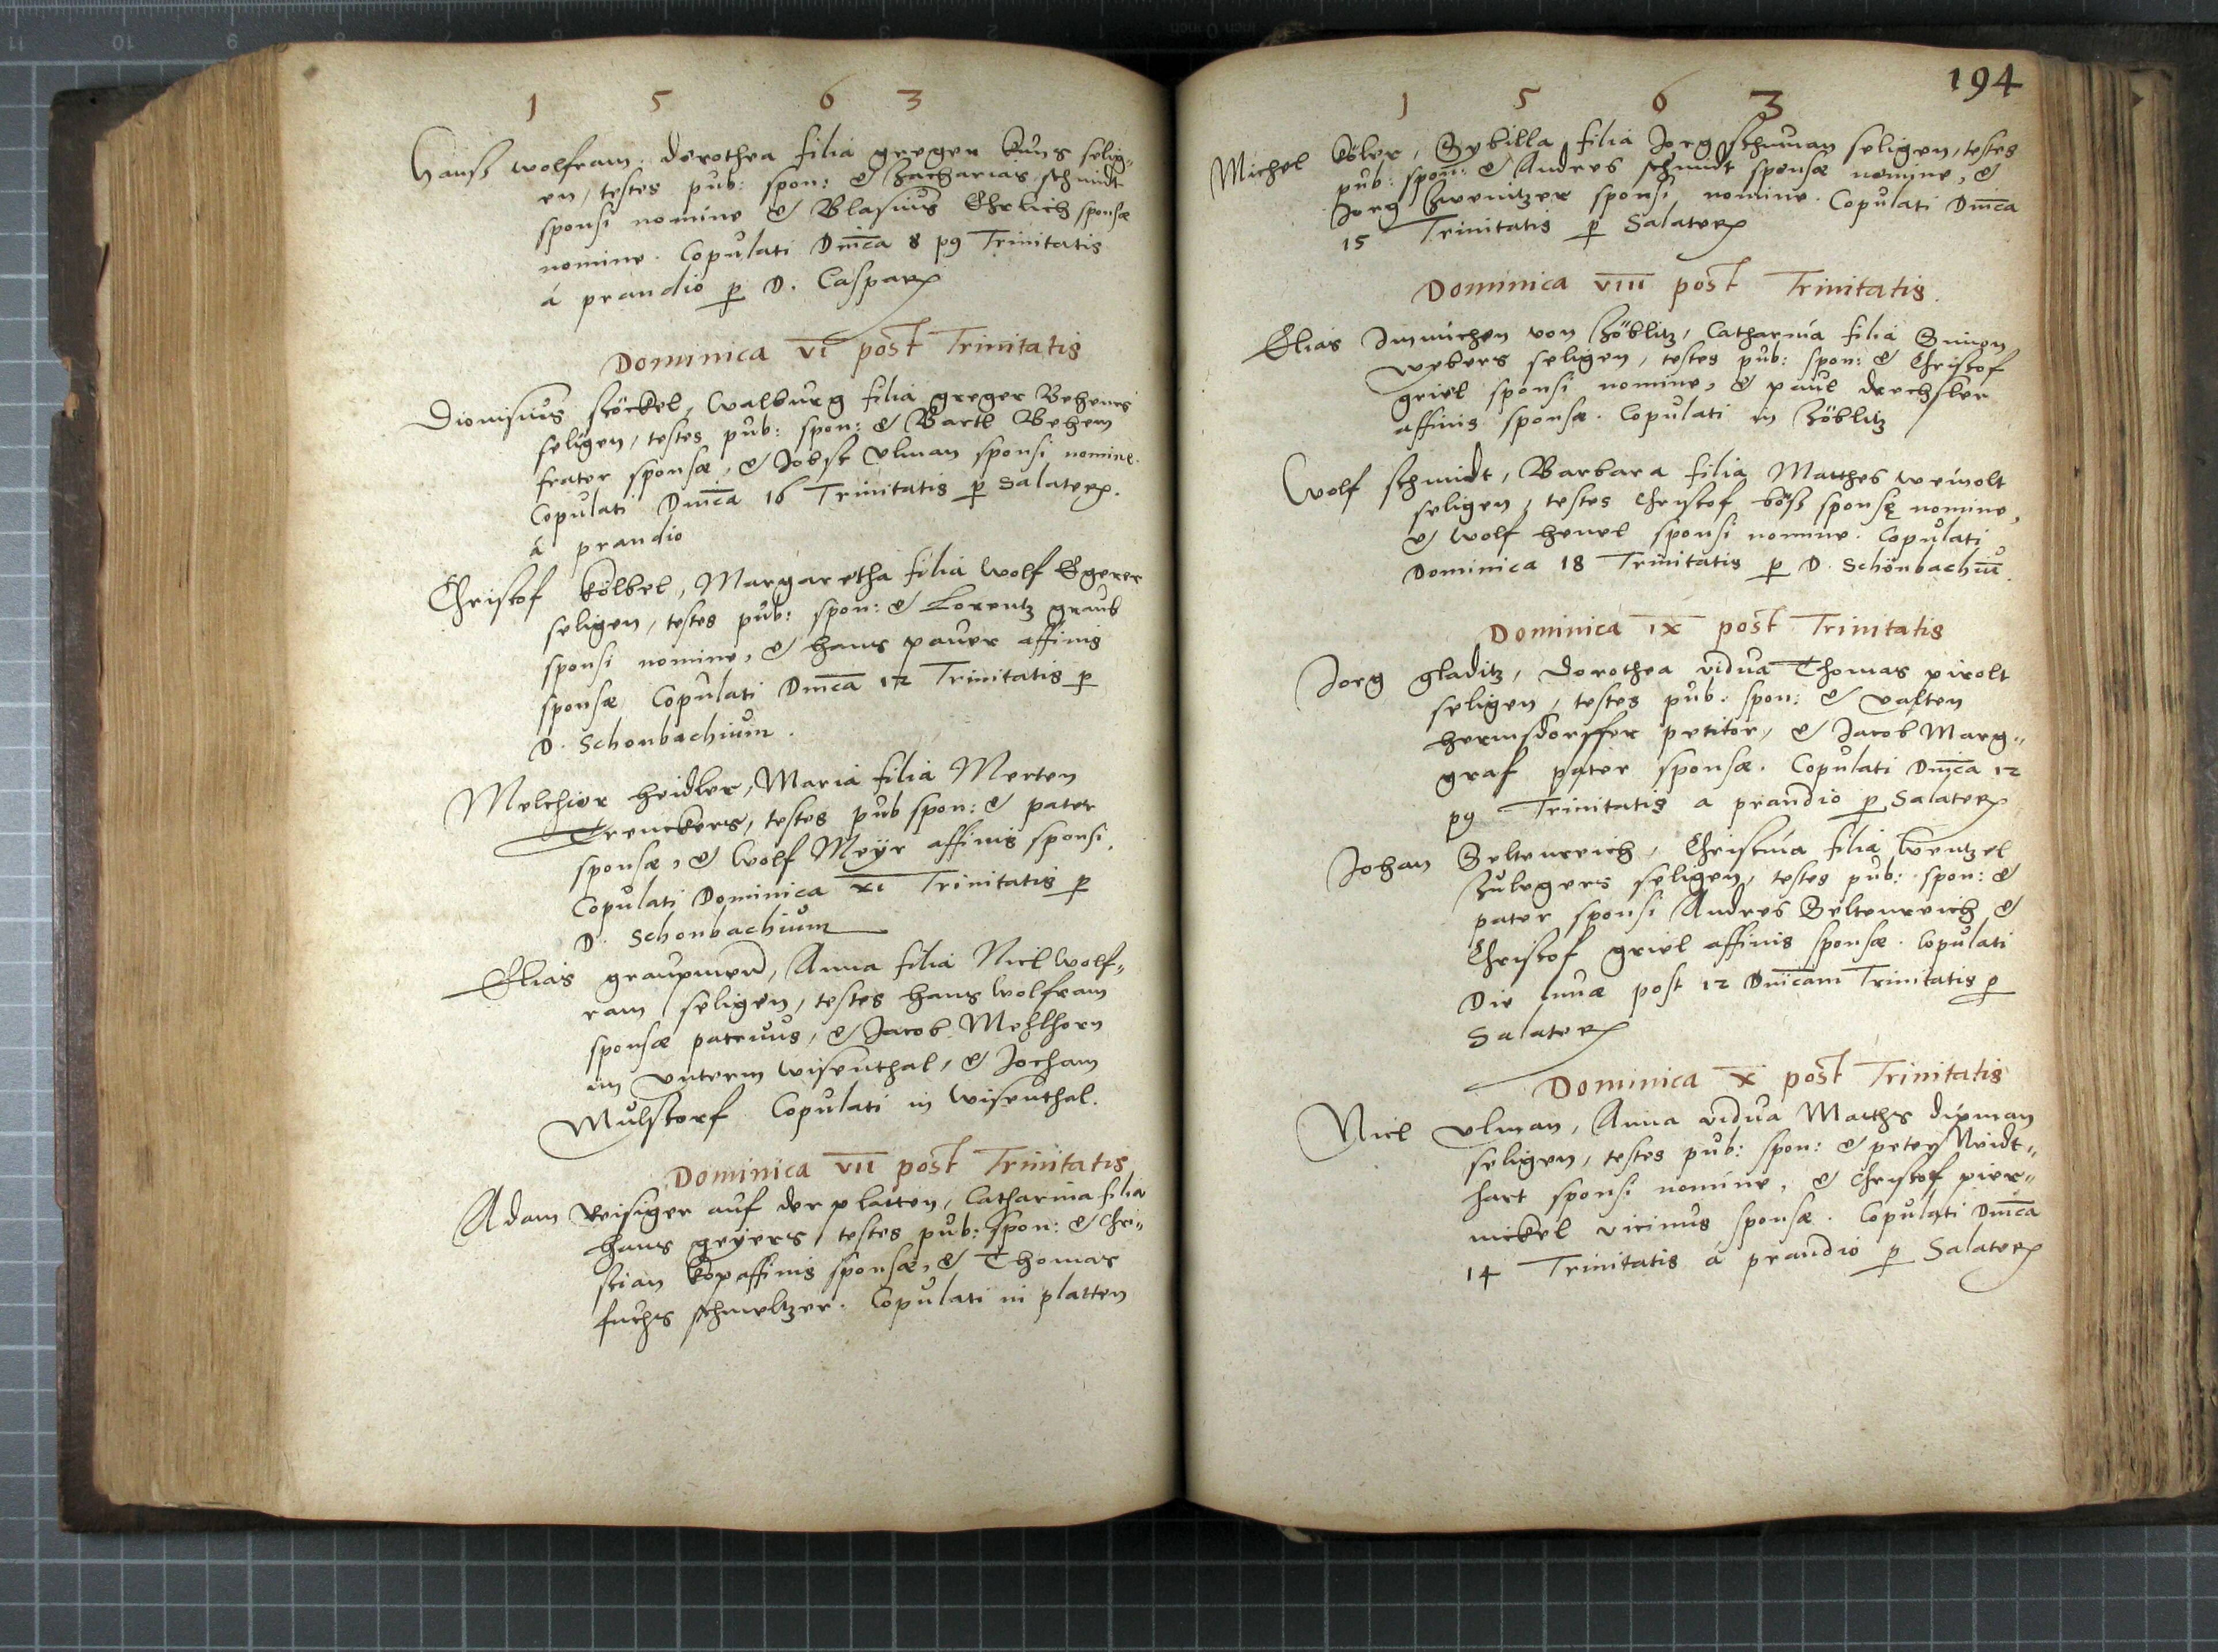 1 5 6 3
Hanß wolfram. dorothea filia gregen kuns selig=
en, testes pub: spon: & Zacharias schmidt
sponsi nomine & Blasius Ehrlich sponsæ
nomine. Copulati Dnica 8 p9 Trinitatis
á prandio p D. Caspare
Dominica VI post Trinitatis
Dionisius Stöckel, Walburg filia greger Behems
seligen, testes pub: spon: & Bartl Behem
frater sponsæ, & Jobst Ulman sponsi nomine.
Copulati Dnica 16 Trinitatis p Salatere.
á prandio
Christof Kölbel, Margaretha filia Wolf Egerer
seligen, testes pub: spon: & Lorentz graus
sponsi nomine, & hans pauer affinis
sponsæ Copulati Dnica 12 Trinitatis p
D. Schonbachium.
Melchior heidler, Maria filia Merten
Trenckers, testes pub spon: & pater
sponsæ, & Wolf Meÿr affinis sponsi.
Copulati Dominica XI Trinitatis p
D. Schonbachium
Elias graupner, Anna filia Nicl Wolf=
ram seligen, testes hans Wolfram
sponsæ patruus, & Jacob Mehlhorn
im unterm Wisenthal, & Jocham
Mulstorf Copulati in Wisenthal.
Dominica VII post Trinitatis
Adam Reisiger auf der platten, Catharina filia
hans geÿers, testes pub: spon: & Chri=
stian kop affinis sponsæ, & Thomas
fuchs schmeltzer. Copulati in platten
194
1 5 6 3
Michel Köler, Sybilla filia Jorg schuman seligen, testes
pub: spon: & Andres schmidt sponsæ nomine, &
Jorg Zwenitzer sponsi nomine. Copulati Dnica
15 Trinitatis p Salatere
Dominica VIII post Trinitatis.
Elias Immichen von Zöblitz, Catharina filia Simon
webers seligen, testes pub: spon: & Christof
griel sponsi nomine, & paul drechsler
affinis sponsæ. Copulati in Zöblitz
Wolf schmidt, Barbara filia Matthes weinolt
seligen, testes Christof böß sponsę nomine,
& Wolf henel sponsi nomine. Copulati
Dominica 18 Trinitatis p D. Schönbachiū.
Dominica IX post Trinitatis
Jorg gladitz, dorothea vidua Thomas pirolt
seligen, testes pub: spon: & valten
hermsdorffer petitor, & Jacob Marg=
graf pater sponsæ. Copulati Dnica 12
p9 Trinitatis a prandio p Salatere
Johan Seltenreich, Christina filia Wentzel
Zulegers seligen, testes pub: spon: &
pater sponsi Andres Seltenreich &
Christof griel affinis sponsæ. Copulati
Die lunæ post 12 Dnicam Trinitatis p
Salatere
Dominica X post Trinitatis
Nicl Ulman, Anna vidua Matthes dipman
seligen, testes pub: spon: & peter Neidt=
hart sponsi nomine, & Christof pier=
nickel vicinus sponsæ. Copulati Dnica
14 Trinitatis á prandio p Salatere